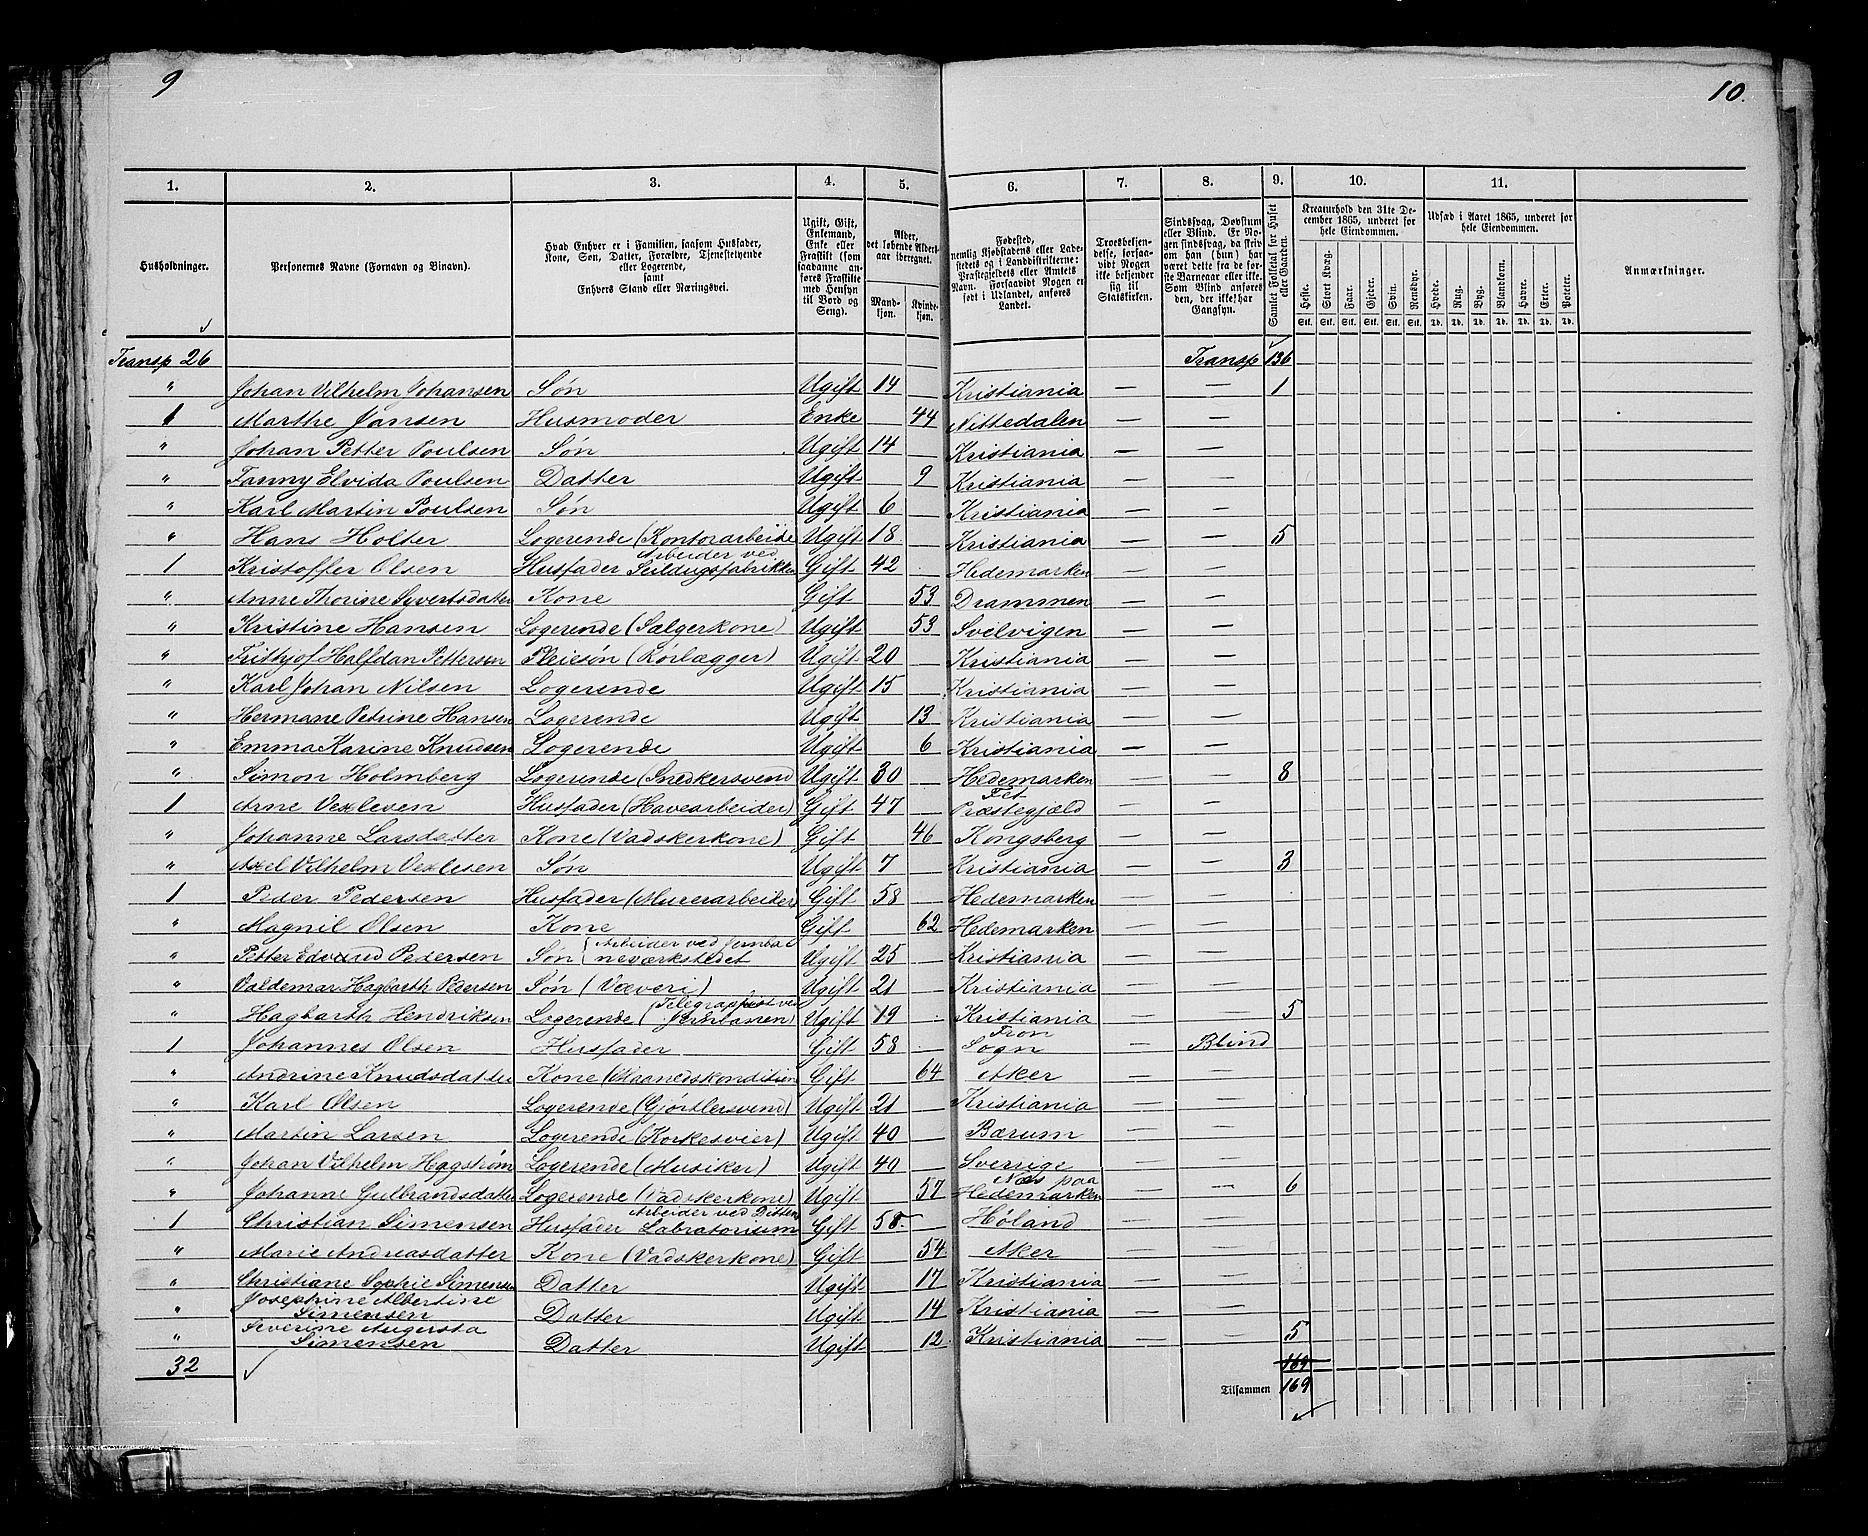 9
10.
1. 2. 3. 4. 5. 6. 7. 8. 9. 10. 11.
Husholdninger.
Personernes Navne (Fornavn og Binavn).
Hvad Enhver er i Familien, saasom Husfader,
Kone, Søn, Datter, Forældre, Tjenestetyende
eller Logerende,
samt
Enhvers Stand eller Næringsvei.
Ugift, Gift,
Enkemand,
Enke eller
Fraskilt (som
saadanne an-
føres Fraskilte
med Hensyn
til Bord og
Seng).
Alder,
det løbende Alders-
aar iberegnet.
Mand-
kjøn.
Kvinde-
kjøn.
Fødested,
nemlig Kjøbstadens eller Lade-
stedets og i Landdistrikterne:
Præstegjeldets eller Amtets
Navn. Forsaavidt Nogen er
født i Udlandet, anføres
Landet.
Troesbekjen-
delse, forsaa-
vidt Nogen
ikke bekjender
sig til
Statskirken.
Sindssvag, Døvstum
eller Blind. Er No-
gen sindssvag, da skriv
om han (hun) har
været dette fra de før-
ste Barneaar eller ikke.
Som Blind anføres
den, der ikke har
Gangsyn.
Samlet Folketal for Huset
eller Gaarden.
Kreaturhold den 31te De-
cember 1865, underet for
hele Eiendommen.
Heste. Stort Kvæg. Faar. Gjeder. Svin. Rensdyr.
Stk. Stk. Stk. Stk. Stk. Stk.
Udsæd i Aaret 1865, underet for
hele Eiendommen.
Hvede. Rug. Byg. Blandkorn. Havre. Erter. Poteter.
Td. Td. Td. Td. Td. Td. Td.
Anmærkninger.
Transp 26 Transp 136
" Johan Vilhelm Johansen Søn Ugift 14 Kristiania — — 1
1 Marthe Jansen Husmoder Enke 44 Nittedalen — —
" Johan Petter Poulsen Søn Ugift 14 Kristiania — —
" Fanny Elvida Poulsen Datter Ugift 9 Kristiania — —
" Karl Martin Poulsen Søn Ugift 6 Kristiania — —
" Hans Holter Logerende (Kontorarbeide Ugift 18 Kristiania — — 5
1 Kristoffer Olsen Husfader Arbeider ved Seildugsfabrikken Gift 42 Hedemarken — —
" Anne Thorine Syvertsdatter Kone Gift 53 Drammen — —
" Kristine Hansen Logerende (Salgerkone) Ugift 53 Svelvigen — —
" Frithjof Halfdan Pettersen Pleiesøn (Rørlægger) Ugift 20 Kristiania — —
" Karl Johan Nilsen Logerende Ugift 15 Kristiania — —
" Hermane Petrine Hansen Logerende Ugift 13 Kristiania — —
" Emma Karine Knudsen Logerende Ugift 6 Kristiania — —
" Simon Holmberg Logerende (Snedkersvend Ugift 30 Hedemarken — — 8
1 Arne Vexlesen Husfader (Havearbeider) Gift 47 Fet Præstegjæld — —
" Johanne Larsdatter Kone (Vadskerkone) Gift 46 Kongsberg — —
" Axel Vilhelm Vexlesen Søn Ugift 7 Kristiania — — 3
1 Peder Pedersen Husfader (Murerarbeider) Gift 58 Hedemarken — —
" Magnil Olsen Kone Gift 62 Hedemarken — —
" Petter Edvard Pedersen Søn (Arbeider ved Jernba neværkstedet Ugift 25 Kristiania — —
" Valdemar Hagbarth Pedersen Søn (Væveri) Ugift 21 Kristiania — —
" Hagbarth Hendriksen Logerende (Telegraphist ved Jernbanen) Ugift 19 Kristiania — — 5
1 Johannes Olsen Husfader Gift 58 Fron Sogn — Blind
" Andrine Knudsdatter Kone (Maanedskondition Gift 64 Aker — —
" Karl Olsen Logerende (Gjørtlersvend) Ugift 21 Kristiania — —
" Martin Larsen Logerende (Korkesvier) Ugift 40 Bærum — —
" Johan Vilhelm Hagstrøm Logerende (Musiker) Ugift 40 Sverrige — —
" Johanne Gulbrandsdatter Logerende (Vadskerkone) Ugift 57 Næs paa Hedemarken — — 6
1 Christian Simensen Husfader Arbeider ved Ditten Labratorium Gift 58 Høland — —
" Marie Andreasdatter Kone (Vadskerkone) Gift 54 Aker — —
" Christiane Sophie Simensen Datter Ugift 17 Kristiania — —
" Josephine Albertine Simensen Datter Ugift 14 Kristiania — —
" Severine Augusta Simensen Datter Ugift 12 Kristiania — — 5
32 169
Tilsammen 169